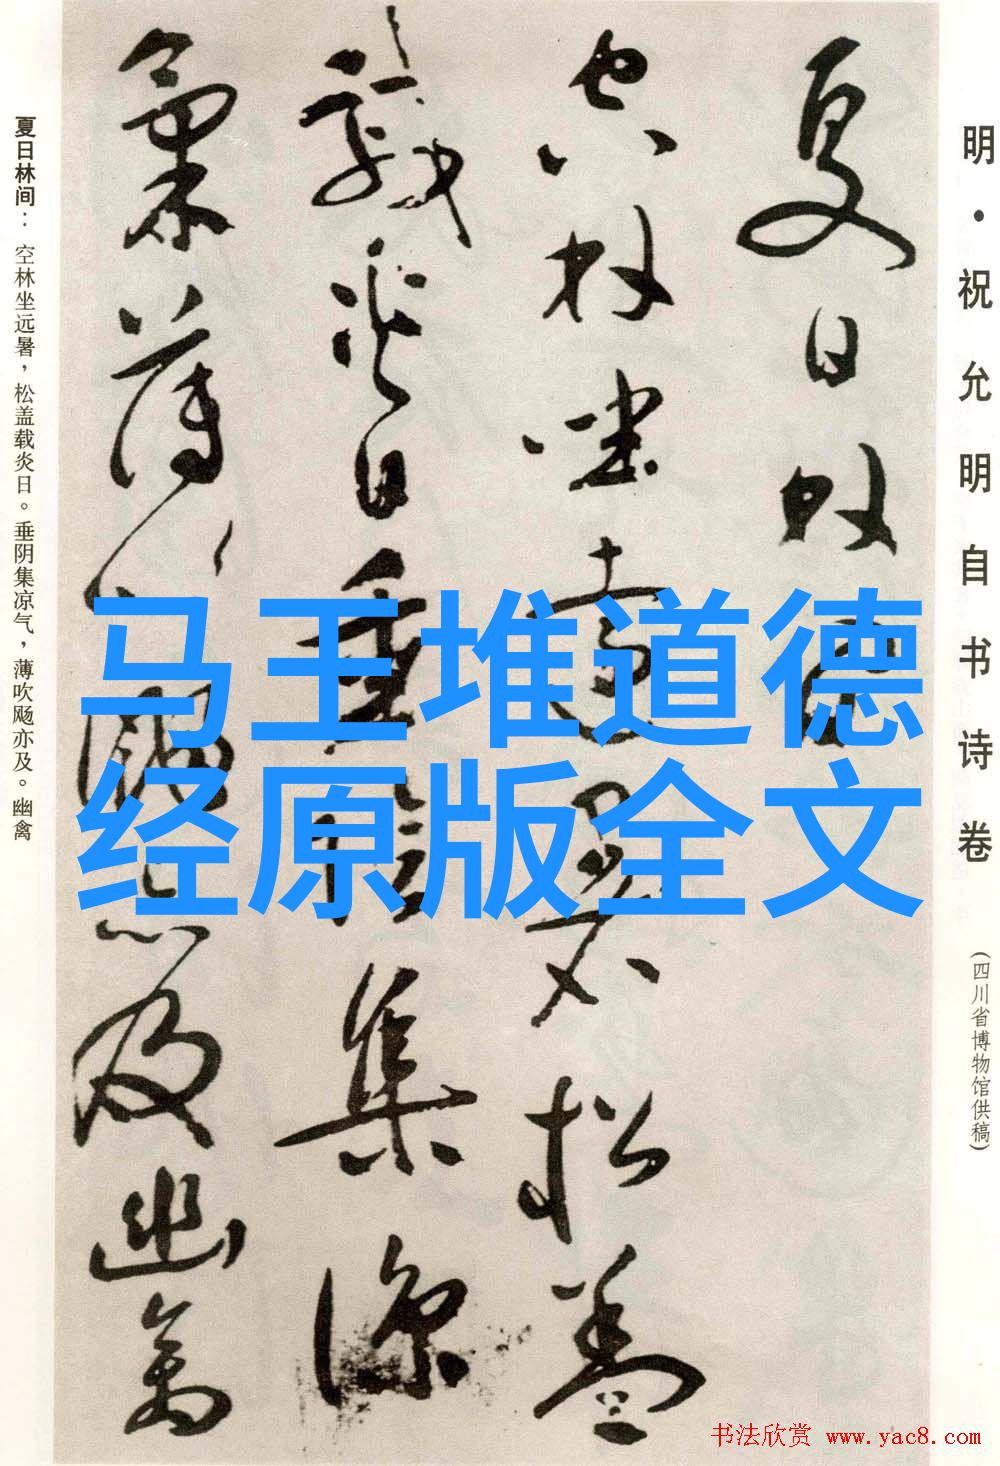 明·祝允明自书诗卷
(四川省博物馆供稿)
夏日林间
空林坐远暑松盖
载炎日垂阴集凉
气薄吹飏亦及幽禽
夏日林间：空林坐远暑，松盖载炎日。垂阴集凉气，薄吹飏亦及。幽禽
马王堆道德
经原版全文
书法欣赏 www.yac8.com